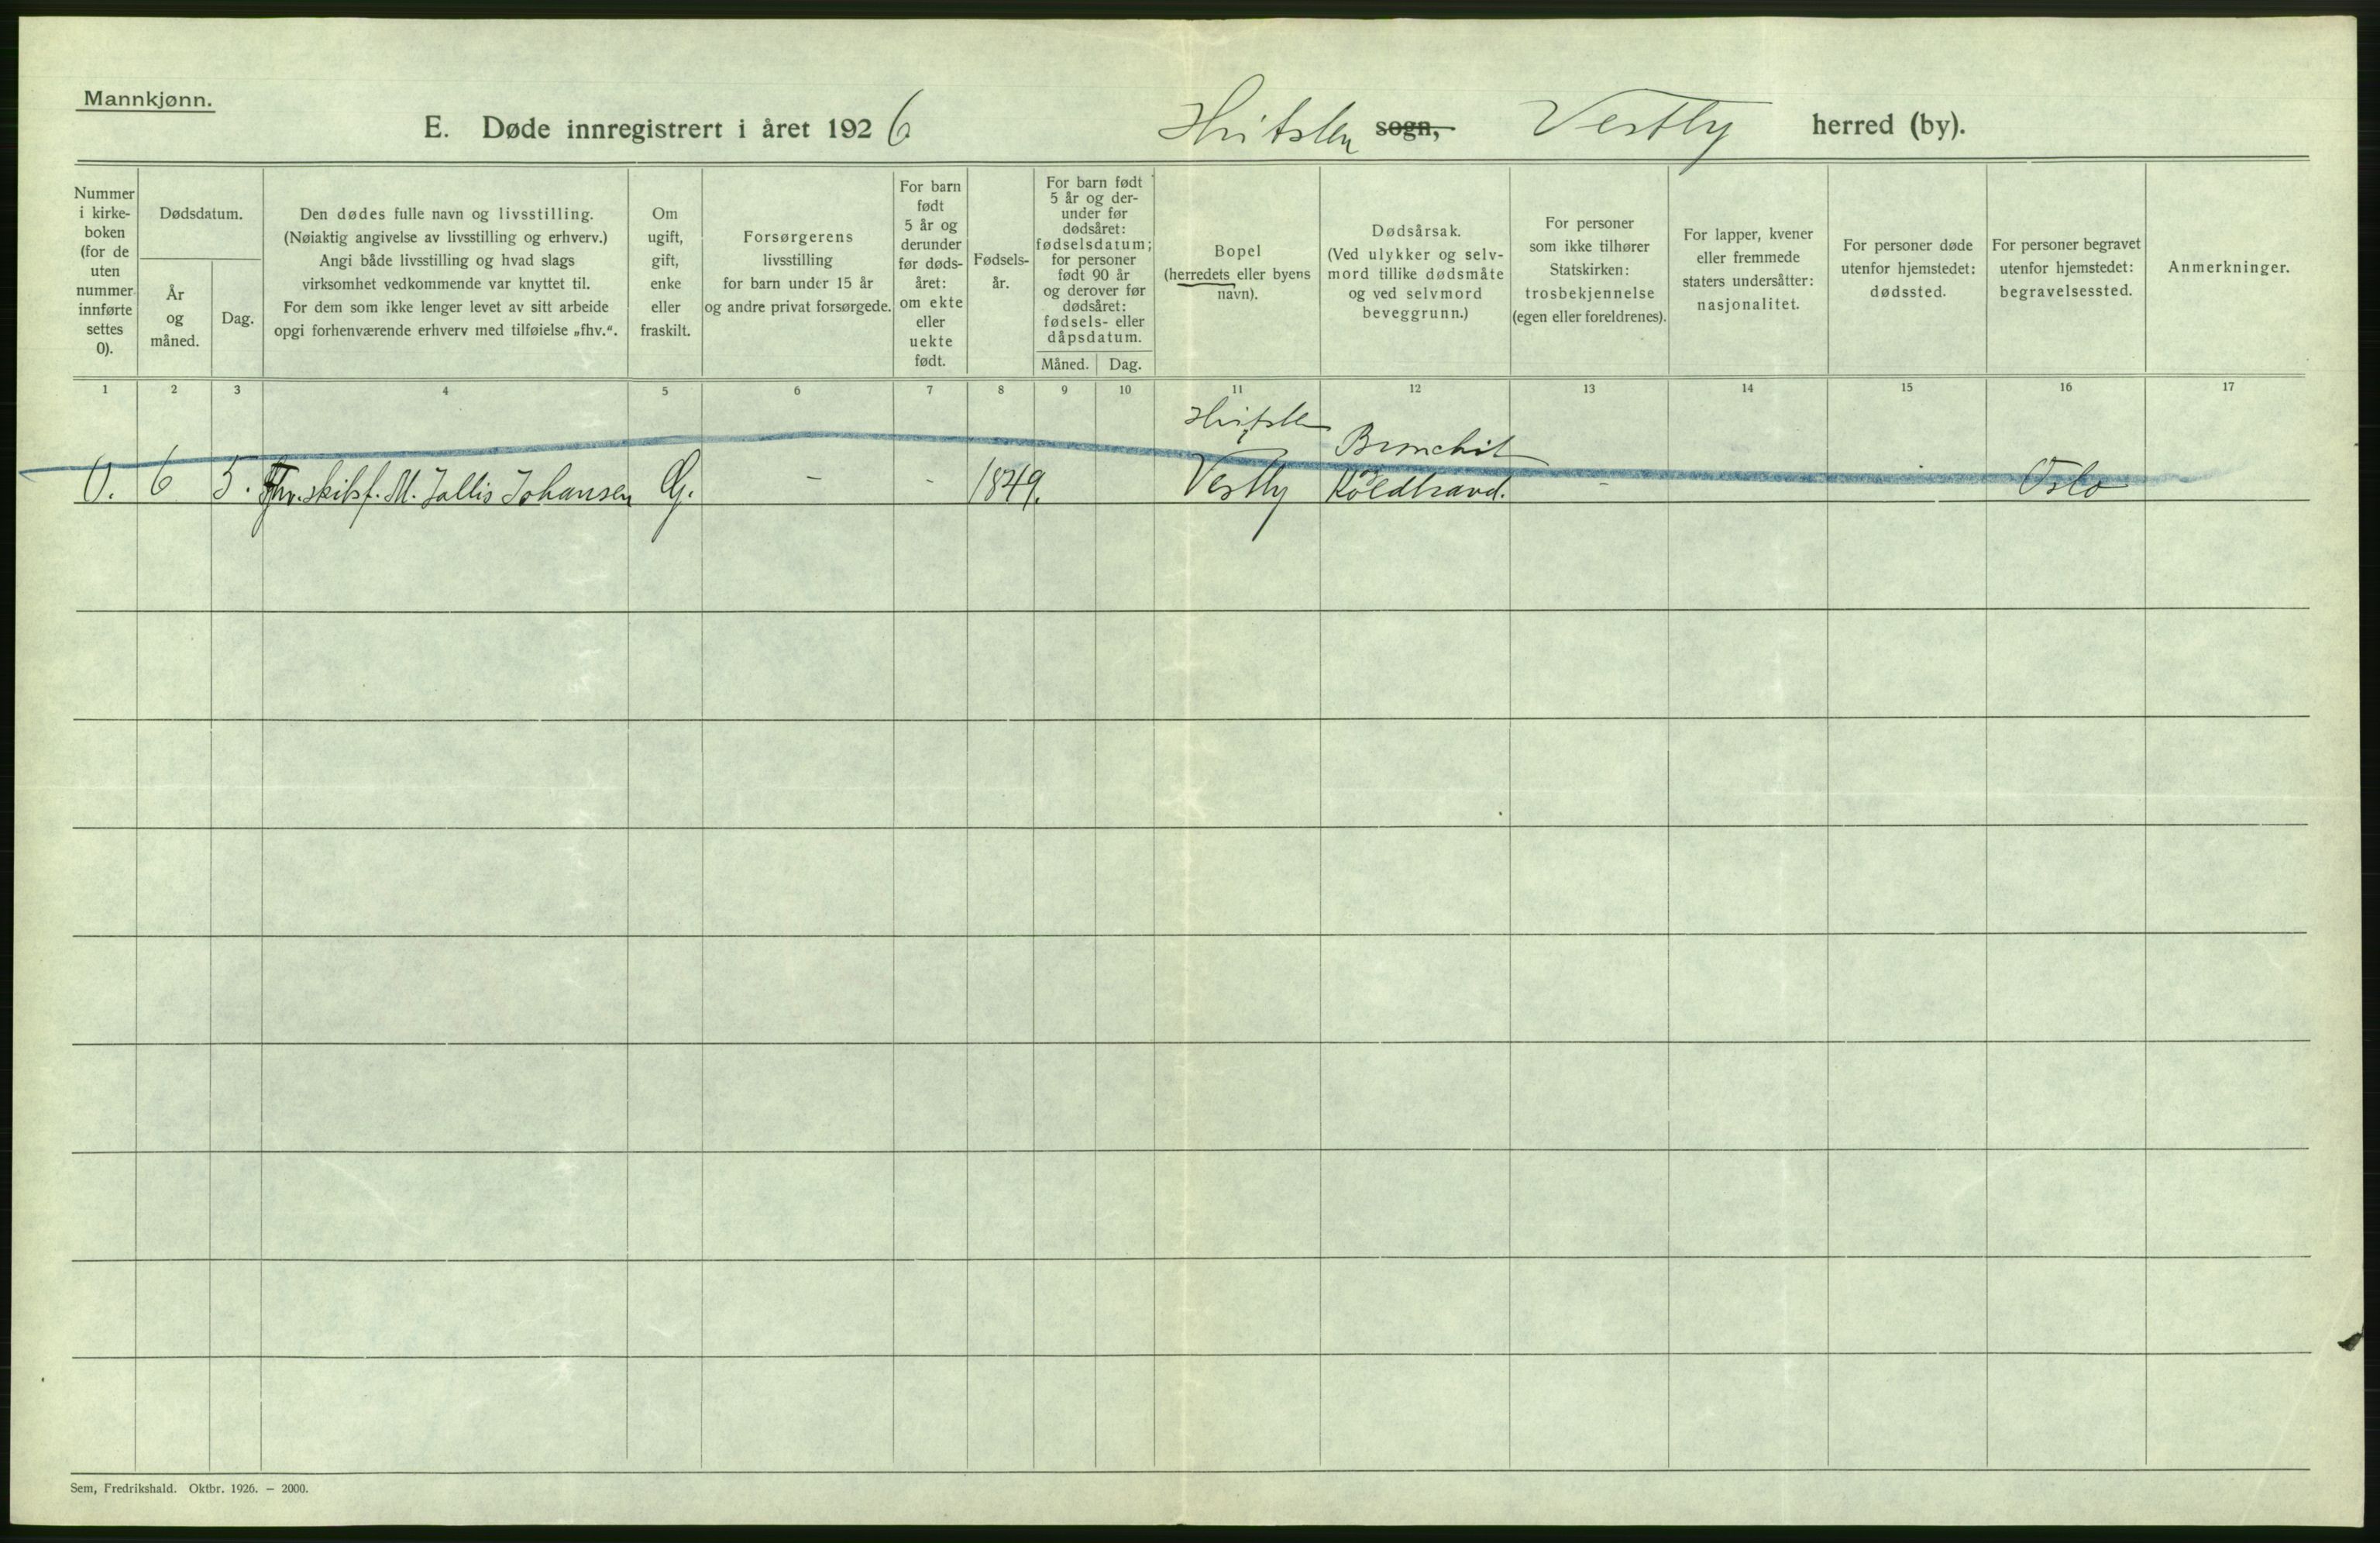 Mannkjønn.
E. Døde innregistrert i året 1926 Hvitsten sogn, Vestby herred (by).
Nummer
i kirke-
boken
(for de
uten
nummer
innførte
settes
0).
Dødsdatum.
År
og
måned.
Dag.
Den dødes fulle navn og livsstilling.
(Nøiaktig angivelse av livsstilling og erhverv.)
Angi både livsstilling og hvad slags
virksomhet vedkommende var knyttet til.
For dem som ikke lenger levet av sitt arbeide
opgi forhenværende erhverv med tilføielse „fhv.“.
Om
ugift,
gift,
enke
eller
fraskilt.
Forsørgerens
livsstilling
for barn under 15 år
og andre privat forsørgede.
For barn
født
5 år og
derunder
før døds-
året:
om ekte
eller
uekte
født.
Fødsels-
år.
For barn født
5 år og der-
under før
dødsåret:
fødselsdatum;
for personer
født 90 år
og derover før
dødsåret:
fødsels- eller
dåpsdatum.
Måned. Dag.
Bopel
(herredets eller byens
navn).
Dødsårsak.
(Ved ulykker og selv-
mord tillike dødsmåte
og ved selvmord
beveggrunn.)
For personer
som ikke tilhører
Statskirken:
trosbekjennelse
(egen eller foreldrenes).
For lapper, kvener
eller fremmede
staters undersåtter:
nasjonalitet.
For personer døde
utenfor hjemstedet:
dødssted.
For personer begravet
utenfor hjemstedet:
begravelsessted.
Anmerkninger.
1 2 3 4 5 6 7 8 9 10 11 12 13 14 15 16 17
Hvitsten Bronchit
0. 6 5. Fhv. skibsf. M. Jallis Johansen G. - - 1849. Vestby Koldbrand. - - Oslo
Sem, Fredrikshald. Oktbr. 1926. — 2000.